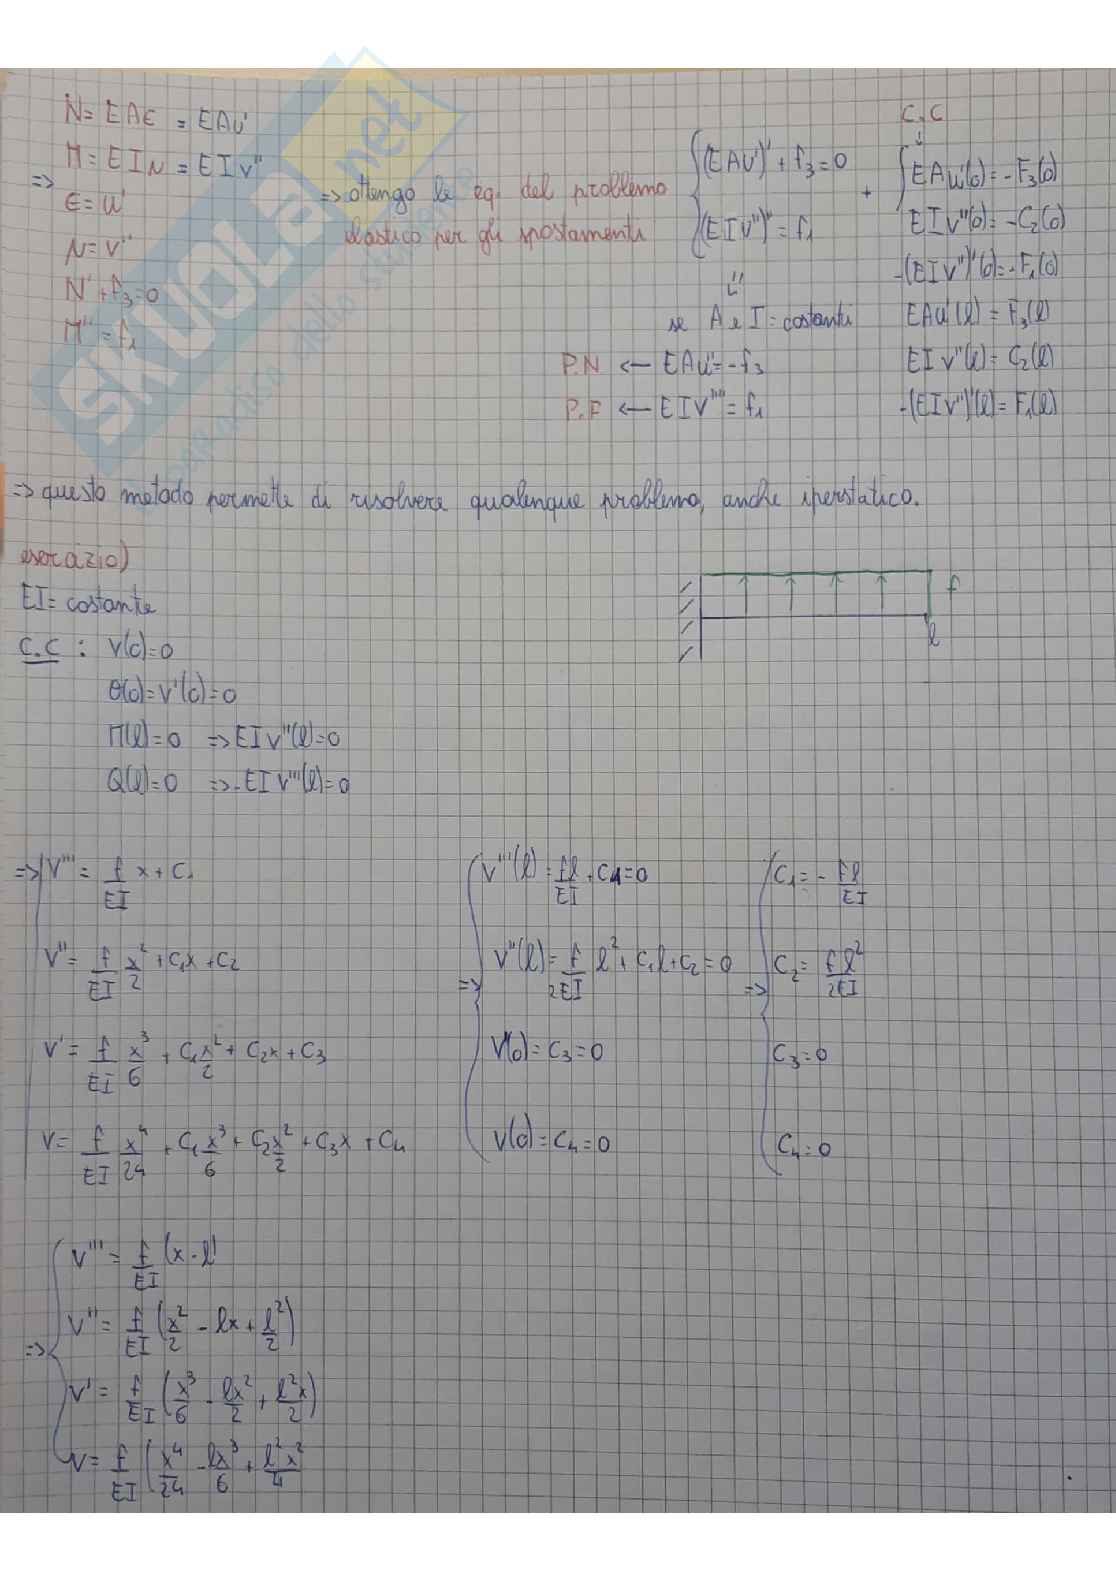 N = EAε = EAu'
M = EIN = EIv''
⇒
ε = u'
N = v''
N' + f₃ = 0
M'' = f₁
⇒ ottengo le eq. del problema
elastico per gli spostamenti
(EAu')' + f₃ = 0
(EIv'')'' = f₁
+
⇓
se A e I = costanti
P.N ← EAu'' = -f₃
P.F ← EIv'''' = f₁
C.C
↓
EAu'(0) = -F₃(0)
EIv''(0) = -C₂(0)
-(EIv'')'(0) = -F₁(0)
EAu'(l) = F₃(l)
EIv''(l) = C₂(l)
-(EIv'')'(l) = F₁(l)
⇒ questo metodo permette di risolvere qualunque problema, anche iperstatico.
esercizio)
EI = costante
C.C : v(0) = 0
θ(0) = v'(0) = 0
M(l) = 0 ⇒ EIv''(l) = 0
Q(l) = 0 ⇒ -EIv'''(l) = 0
f
l
⇒ v''' = f/EI x + C₁
v'' = f/EI x²/2 + C₁x + C₂
v' = f/EI x³/6 + C₁x²/2 + C₂x + C₃
v = f/EI x⁴/24 + C₁x³/6 + C₂x²/2 + C₃x + C₄
⇒
v'''(l) = fl/EI + C₁ = 0
v''(l) = f/2EI l² + C₁l + C₂ = 0
v'(0) = C₃ = 0
v(0) = C₄ = 0
⇒
C₁ = - fl/EI
C₂ = fl²/2EI
C₃ = 0
C₄ = 0
⇒
v''' = f/EI (x - l)
v'' = f/EI (x²/2 - lx + l²/2)
v' = f/EI (x³/6 - lx²/2 + l²x/2)
v = f/EI (x⁴/24 - lx³/6 + l²x²/4
SKUOLA.net